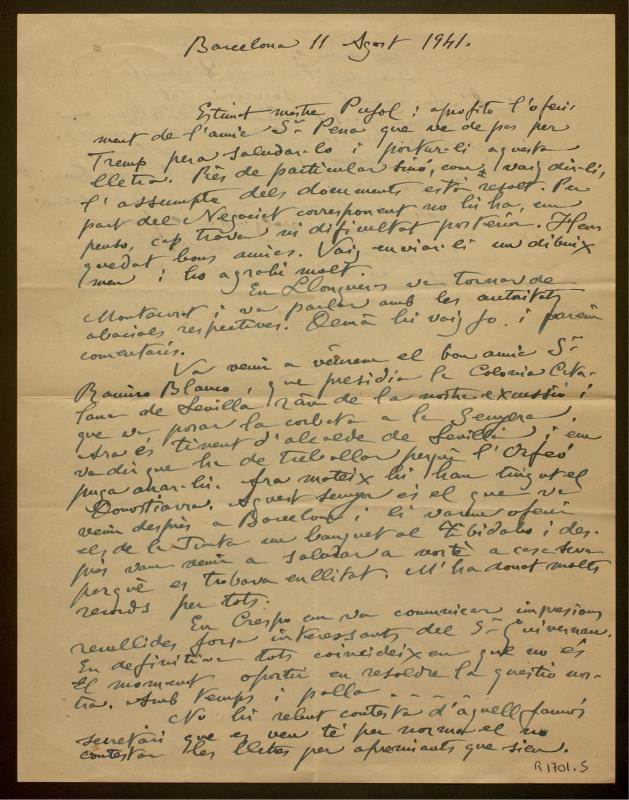 Barcelona 11 Agost 1941.
Estimat mestre Pujol: aprofito l'oferi-
ment de l'amic Sr Pena que ve de pas per
Tremp pera saludar-lo i portar-li aquesta
lletra. Rés de particular sinó, com vaig dir-li,
l'assumpte dels documents está resolt. Per
part del Negociat corresponent no hi ha, em
penso, cap trava ni dificultat posterior. Hem
quedat bons amics. Vaig enviar-li un dibuix
meu i ho agrahí molt.
En Llongueres va tornar de
Montserrat i va parlar amb les autoritats
abacials respectives. Demà hi vaig jo i farém
comentaris.
Va venir a véurem el bon amic Sr
Ramiro Blanco, que presidia la Colonia Cata-
lana de Sevilla de la nostra excussió i
que va posar la corbata a la Senyera.
Ara és tinent d'alcalde de Sevilla i em
va dir que ha de treballar perquè l'Orfeó
puga anar-hi. Ara mateix hi han tingut el
Donostiarra. Aquest senyor és el que va
venir després a Barcelona i li varem oferir
els de la Junta un banquet al Tibidabo i des-
prés vam venir a saludar a vosté a casa seva
perquè es trobava enllitat. M'ha donat molts
records per tots.
En Crespo em va comunicar impresions
recullides força interessants del Sr Guivernau.
En definitiva tots coincideixen en que no és
el moment oportú en resoldre la qüestió nos-
tra. Amb temps i palla - - - -
No hi rebut contesta d'aquell famós
secretari que es veu té per norma el no
contestar les lletres per apremiants que sien.
R 1701.S